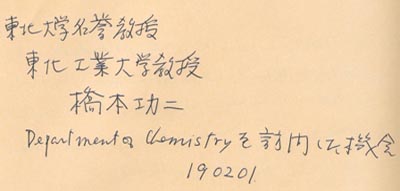 東北大学名誉教授
東北工業大学教授
橋本功二
Department of Chemistryを訪問した機会
190201